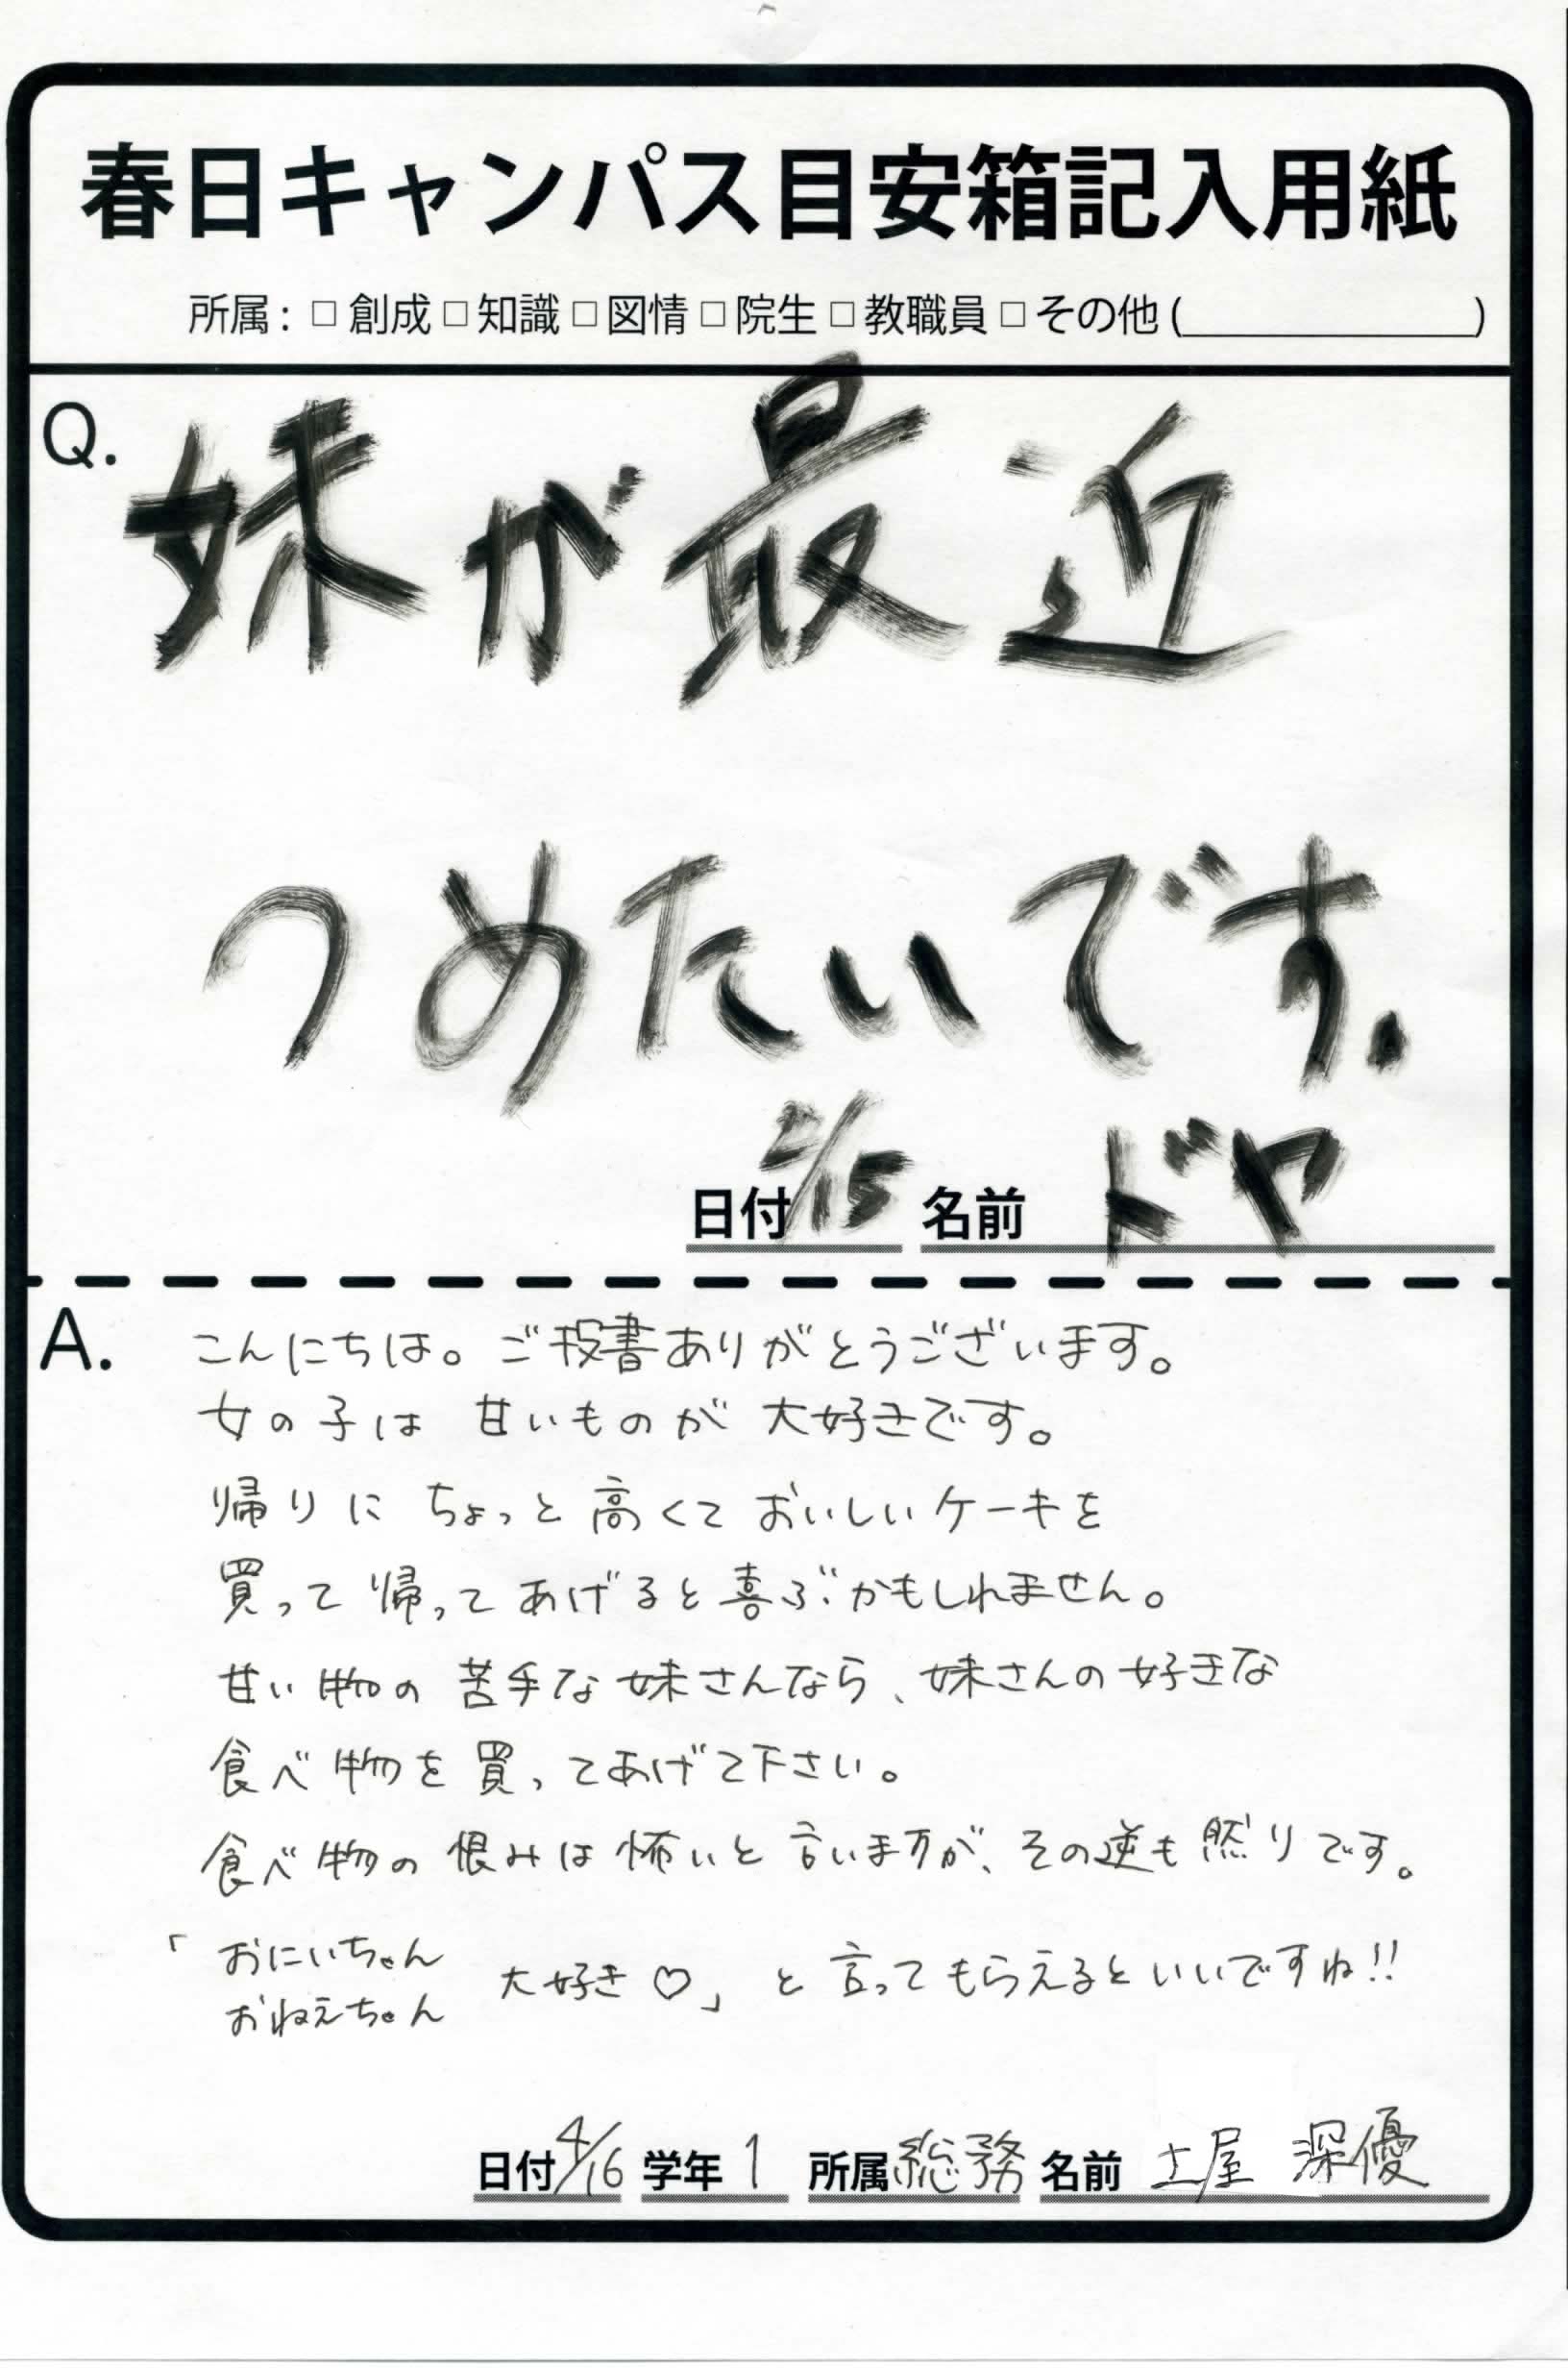 春日キャンパス目安箱記入用紙
所属：□ 創成 □ 知識 □ 図情 □ 院生 □ 教職員 □ その他 (　　　　　)
Q.
妹が最近
つめたいです.
日付 2/15 名前 ドヤ
A.
こんにちは。ご投書ありがとうございます。
女の子は 甘いものが 大好きです。
帰りに ちょっと 高くて おいしいケーキを
買って 帰って あげると 喜ぶかもしれません。
甘い物の 苦手な 妹さんなら、妹さんの 好きな
食べ物を 買ってあげて下さい。
食べ物の 恨みは 怖いと 言いますが、その逆も 然りです。
「おにいちゃん
おねえちゃん 大好き♡」と 言って もらえると いいですね!!
日付 4/16 学年 1 所属 総務 名前 土屋 深優